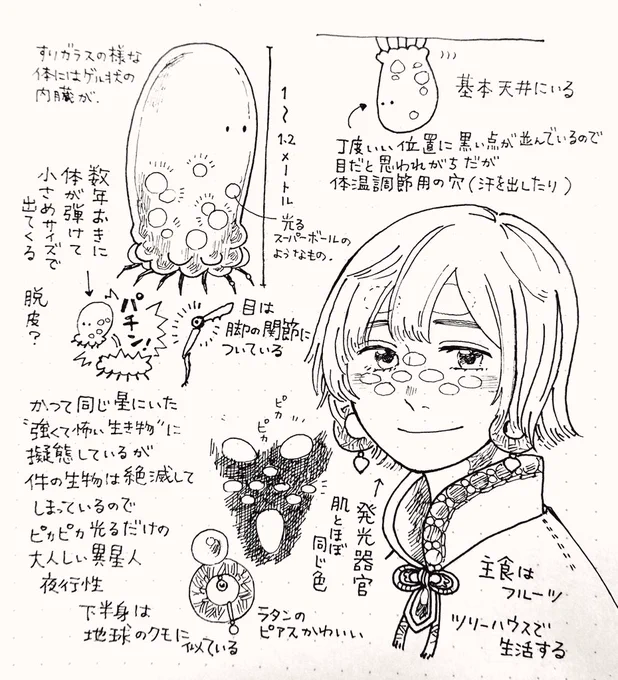 すりガラスの様な
体にはゲル状の
内臓が.
1〜1.2メートル
基本天井にいる
丁度いい位置に黒い点が並んでいるので
目だと思われがちだが
体温調節用の穴(汗を出したり)
光る
スーパーボールの
ようなもの.
数年おきに
体が弾けて
小さめサイズで
出てくる
脱皮?
パチン!
目は
脚の関節に
ついている
かつて同じ星にいた
"強くて怖い生き物"に
擬態しているが
件の生物は絶滅して
しまっているので
ピカピカ光るだけの
大人しい異星人
夜行性
下半身は
地球のクモに
似ている
ピカ
ピカ
発光器官
肌とほぼ
同じ色
ラタンの
ピアスかわいい
主食は
フルーツ
ツリーハウスで
生活する